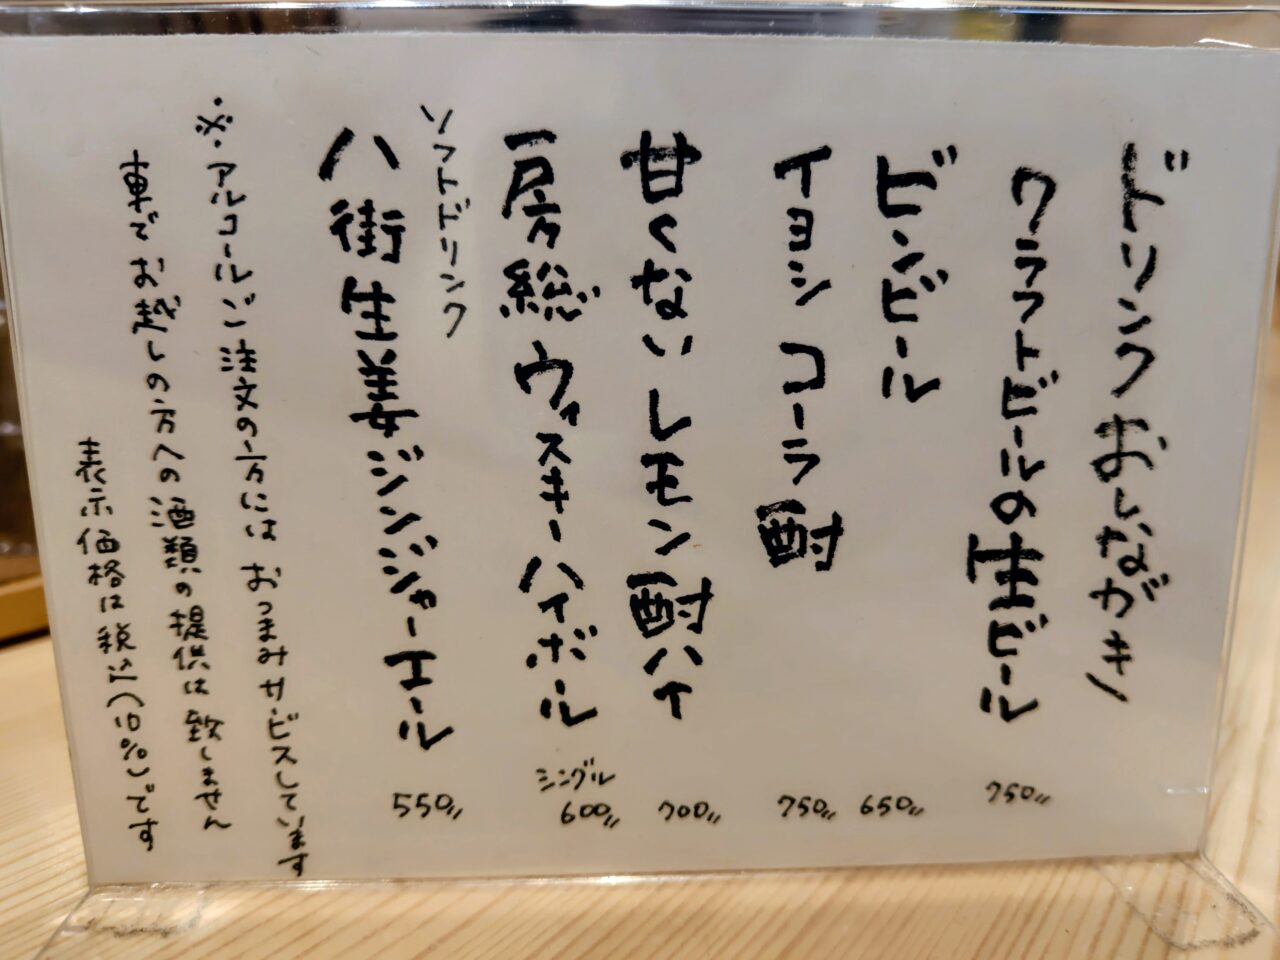 ドリンクおしながき
クラフトビールの生ビール 750〃
ビンビール 650〃
イヨシコーラ酎 750〃
甘くないレモン酎ハイ 700〃
房総ウヰスキーハイボール シングル 600〃
ソフトドリンク
八街生姜ジンジャーエール 550〃
※アルコールご注文の方にはおつまみサービスしています
車でお越しの方への酒類の提供は致しません
表示価格は税込(10%)です